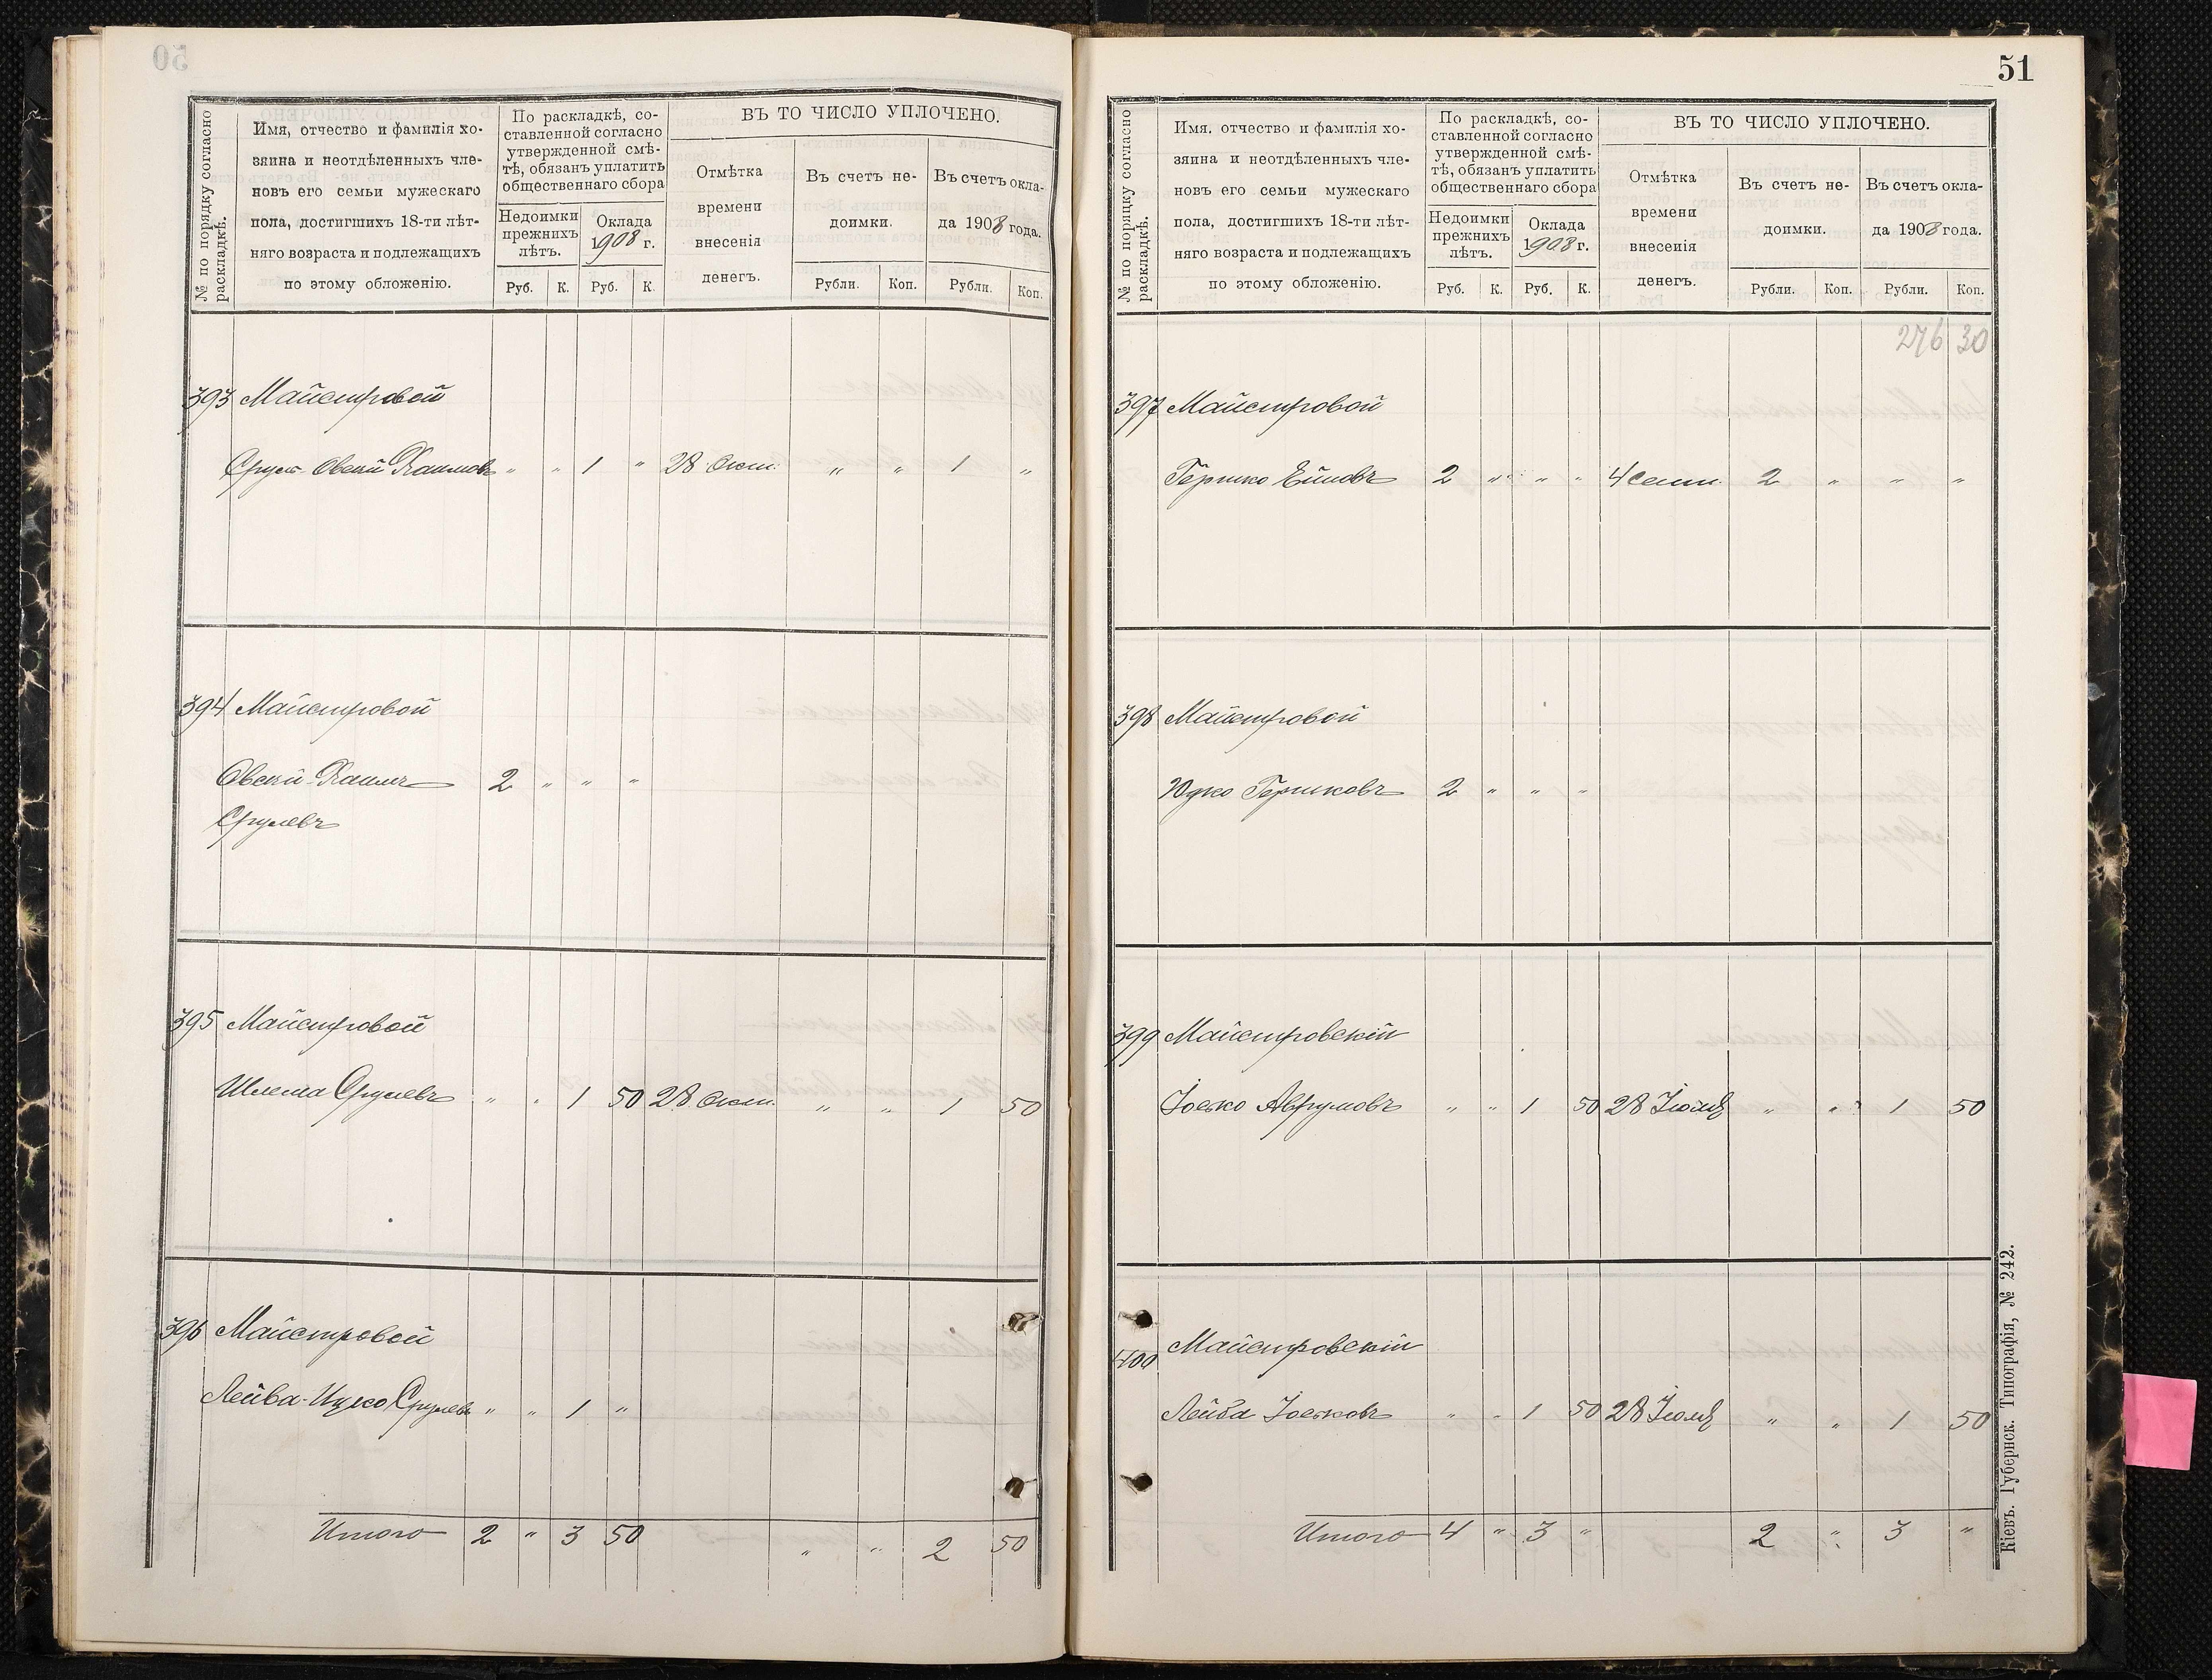 № по порядку согласно раскладкѣ.
Имя, отчество и фамилія хо-
зяина и неотдѣленныхъ чле-
новъ его семьи мужескаго
пола, достигшихъ 18-ти лѣт-
няго возраста и подлежащихъ
по этому обложенію.
По раскладкѣ, со-
ставленной согласно
утвержденной смѣ-
тѣ, обязанъ уплатить
общественнаго сбора
Недоимки
прежнихъ
лѣтъ.
Оклада
1908 г.
Руб. К. Руб. К.
ВЪ ТО ЧИСЛО УПЛОЧЕНО.
Отмѣтка
времени
внесенія
денегъ.
Въ счетъ не-
доимки.
Въ счетъ окла-
да 1908 года.
Рубли. Коп. Рубли. Коп.
393 Майстровой
Сруль-Овсей Хаимовъ " " 1 " 28 Окт. " " 1 "
394 Майстровой
Овсей-Хаимъ 2 " " "
Срулевъ
395 Майстровой
Шлема Срулевъ " " 1 50 28 Окт. " " 1 50
396 Майстровой
Лейба-Ицко Срулевъ " " 1 "
Итого 2 " 3 50 " " 2 50
51
№ по порядку согласно раскладкѣ.
Имя. отчество и фамилія хо-
зяина и неотдѣленныхъ чле-
новъ его семьи мужескаго
пола, достигшихъ 18-ти лѣт-
няго возраста и подлежащихъ
по этому обложенію.
По раскладкѣ, со-
ставленной согласно
утвержденной смѣ-
тѣ, обязанъ уплатить
общественнаго сбора
Недоимки
прежнихъ
лѣтъ.
Оклада
1908 г.
Руб. К. Руб. К.
ВЪ ТО ЧИСЛО УПЛОЧЕНО.
Отмѣтка
времени
внесенія
денегъ.
Въ счетъ не-
доимки.
Въ счетъ окла-
да 1908 года.
Рубли. Коп. Рубли. Коп.
276 30
397 Майстровой
Гершко 2 " " " 4 Сент. 2 " " "
398 Майстровой
Юдко Гершковъ 2 " " "
399 Майстровскій
Іосько Аврумовъ " " 1 50 28 Іюля " " 1 50
400 Майстровскій
Лейба Іоськовъ " " 1 50 28 Іюля " " 1 50
Итого 4 " 3 " 2 " 3 "
Кіевъ. Губернск. Типографія, № 242.